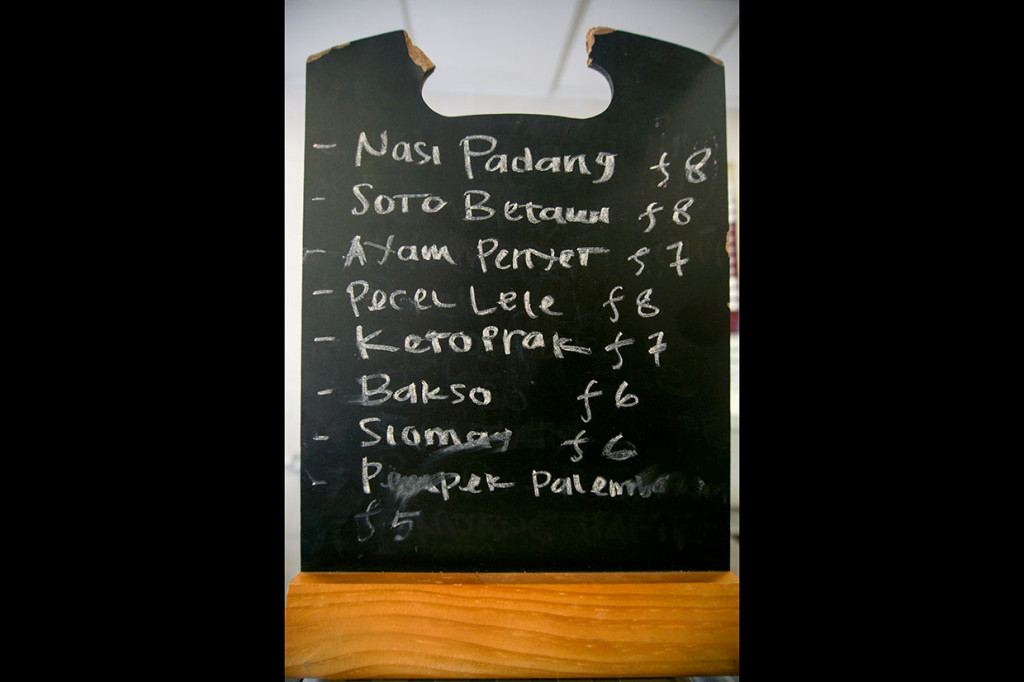 - Nasi Padang £8
- Soto Betawi £8
- Ayam Penyet £7
- Pecel Lele £8
- Ketoprak £7
- Bakso £6
- Siomay £6
- Pempek Palembang
£5